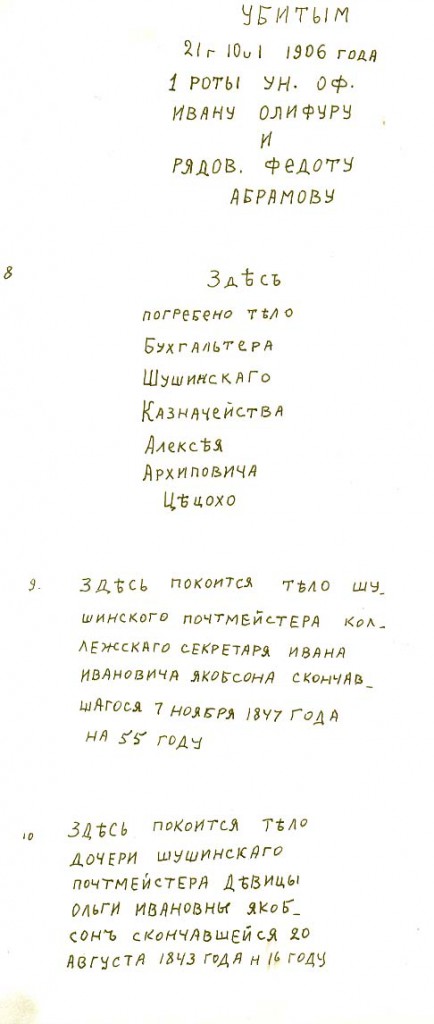 УБИТЫМ
21г 10и1 1906 ГОДА
1 РОТЫ УН. ОФ.
ИВАНУ ОЛИФУРУ
И
РЯДОВ. ФЕДОТУ
АБРАМОВУ
8
ЗДѢСЬ
ПОГРЕБЕНО ТѢЛО
БУХГАЛЬТЕРА
ШУШИНСКАГО
КАЗНАЧЕЙСТВА
АЛЕКСѢЯ
АРХИПОВИЧА
ЦѢЦОХО
9. ЗДѢСЬ ПОКОИТСЯ ТѢЛО ШУ-
ШИНСКОГО ПОЧТМЕЙСТЕРА КОЛ-
ЛЕЖСКАГО СЕКРЕТАРЯ ИВАНА
ИВАНОВИЧА ЯКОБСОНА СКОНЧАВ-
ШАГОСЯ 7 НОЯБРЯ 1847 ГОДА
НА 55 ГОДУ
10 ЗДѢСЬ ПОКОИТСЯ ТѢЛО
ДОЧЕРИ ШУШИНСКАГО
ПОЧТМЕЙСТЕРА ДѢВИЦЫ
ОЛЬГИ ИВАНОВНЫ ЯКОБ-
СОНЪ СКОНЧАВШЕЙСЯ 20
АВГУСТА 1843 ГОДА Н 16 ГОДУ